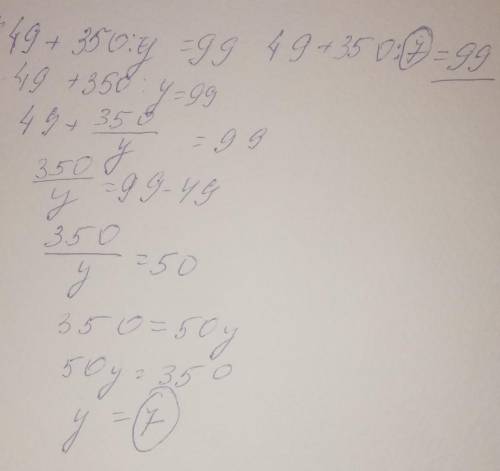 49 + 350 : y = 99 49 + 350 : 7 = 99
49 + 350 : y = 99
49 + 350/y = 99
350/y = 99 - 49
350/y = 50
350 = 50y
50y = 350
y = 7